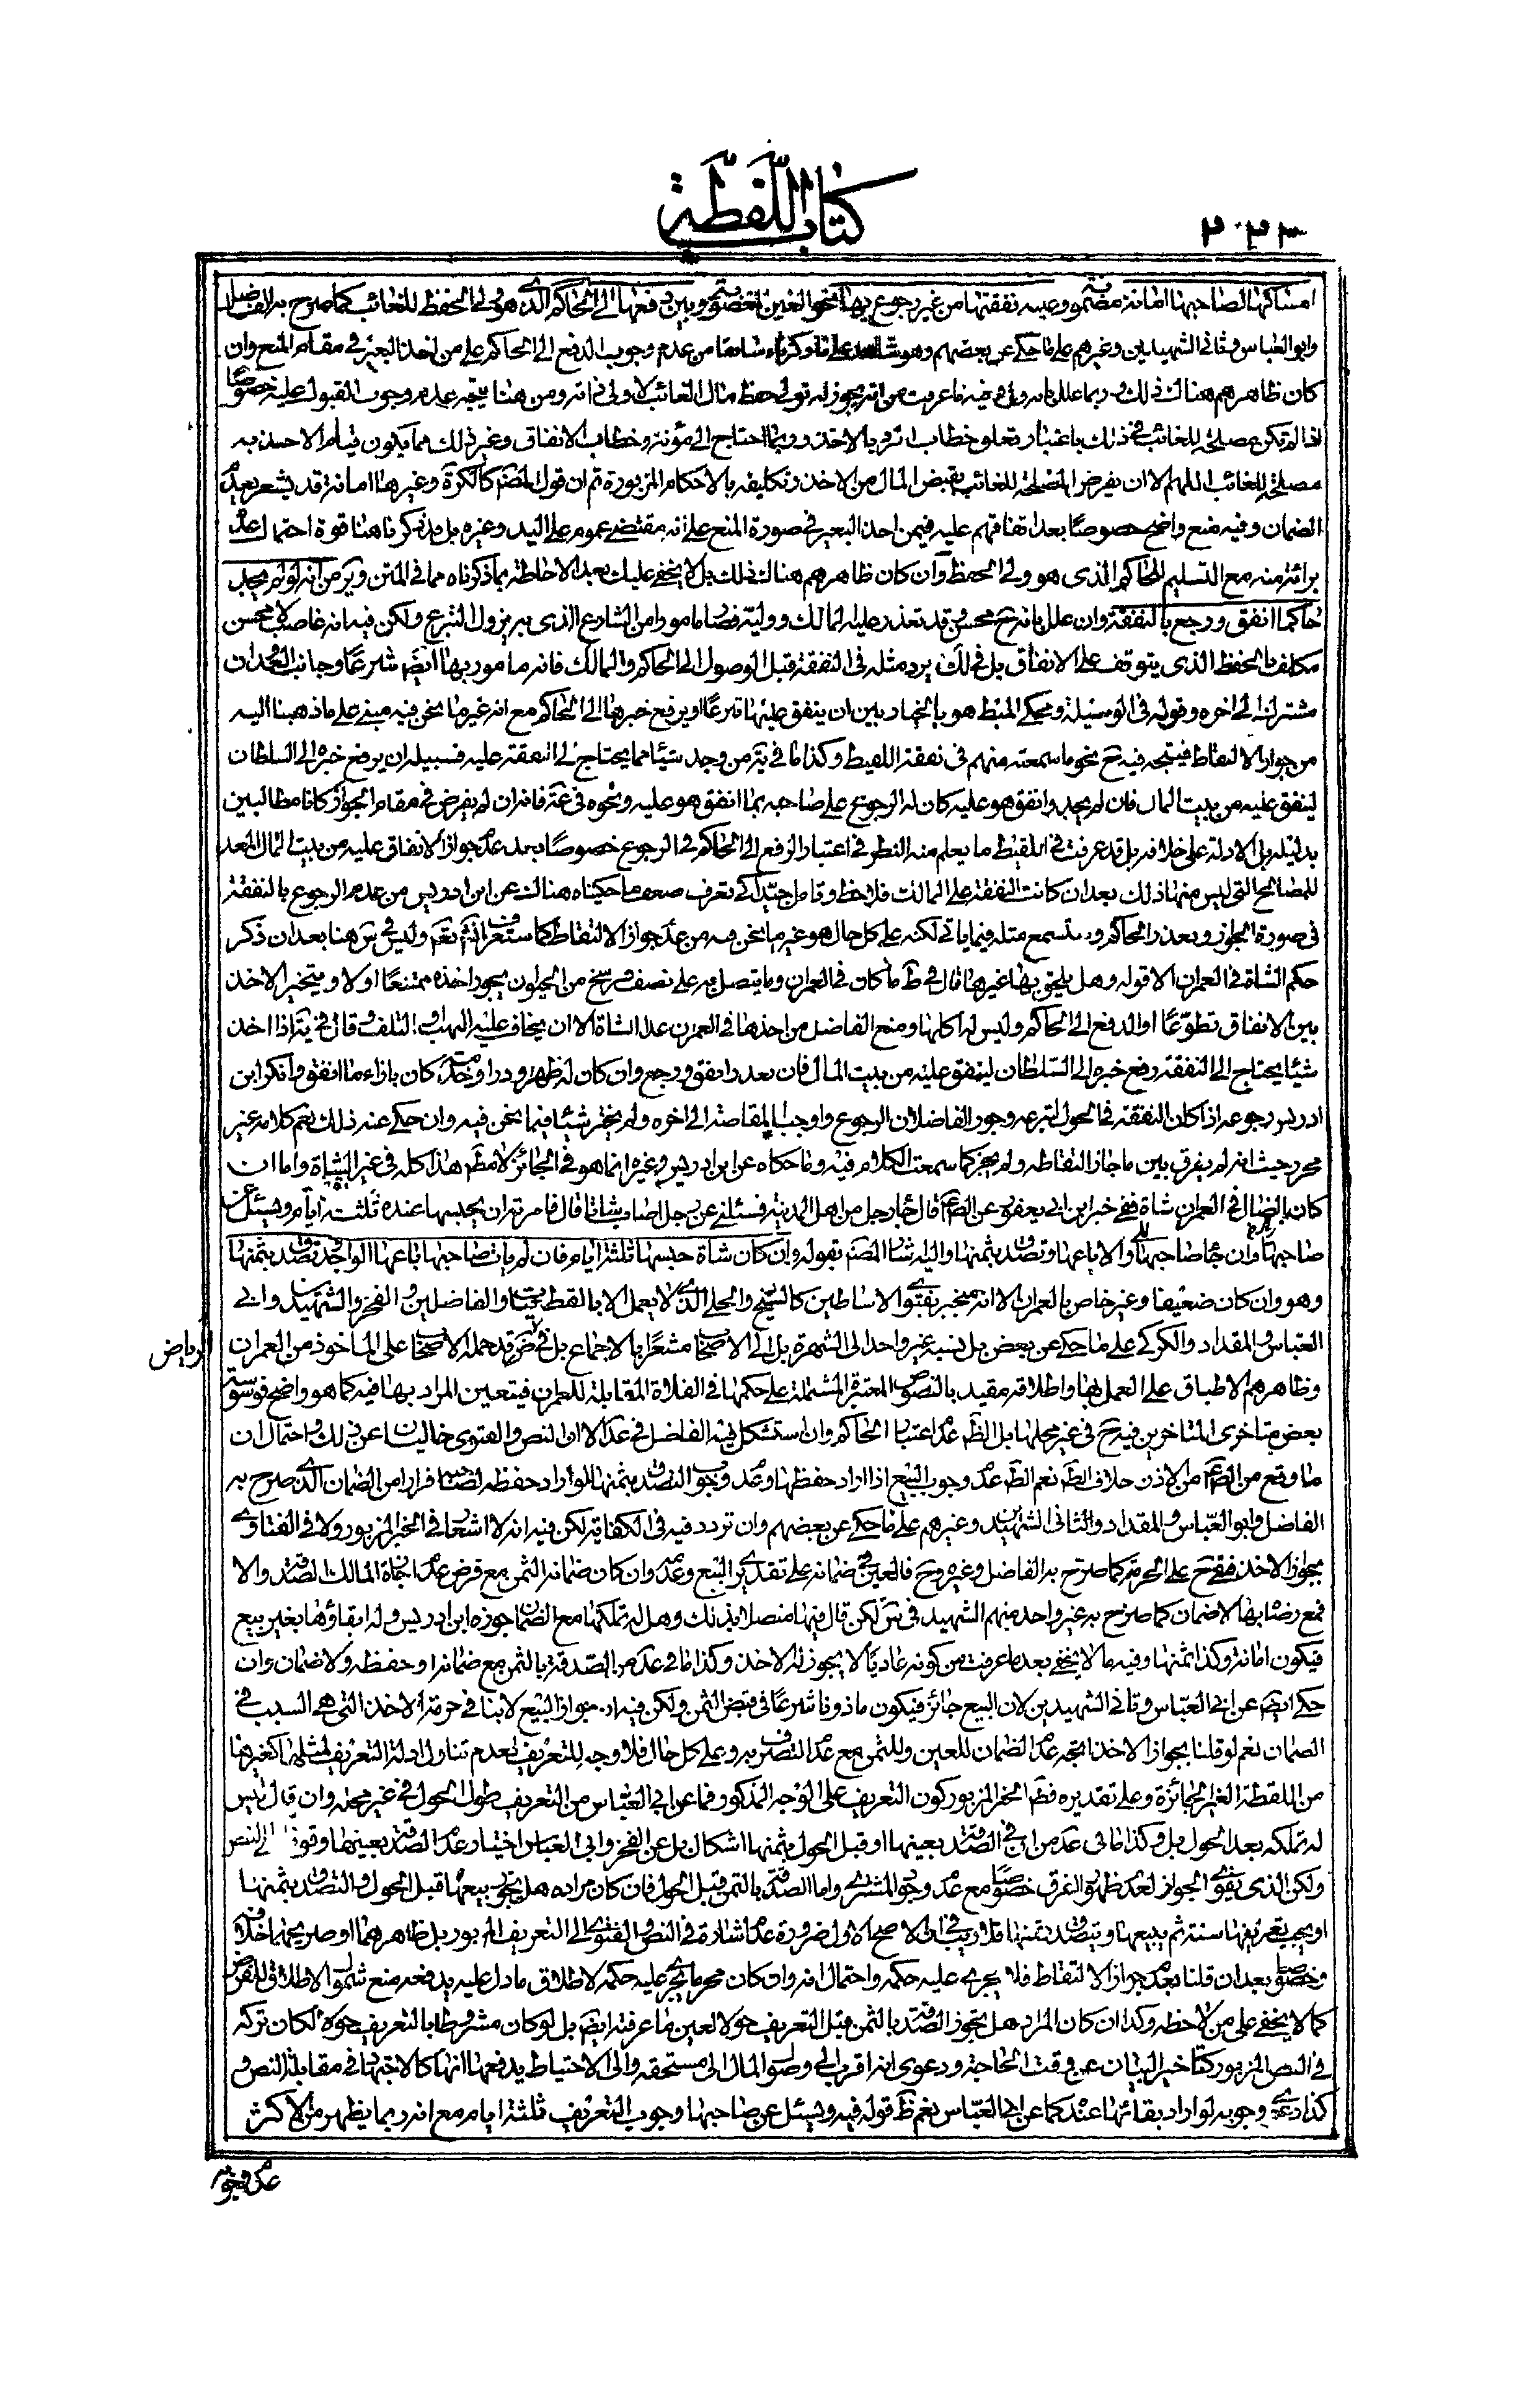 كتاب اللقطة
امساكها لصاحبها امانة مضمونة وعليه نفقتها من غير رجوع بها نحو العين المغصوبة وبين دفعها الى الحاكم الذي هو ولي الحفظ للغائب كما صرح به الفاضل
وابو العباس وثاني الشهيدين وغيرهم على ما حكي عن بعضهم وهو شاهد على ما ذكرناه سابقا من عدم وجوب الدفع الى الحاكم على من اخذ البعير في مقام المنع وان
كان ظاهرهم هنالك ذلك وربما علل بانه وفيه ما عرفت من انه يجوز له تولى حفظ مال الغائب لا ولي ذاته ومن هنا يتجه عدم وجوب القبول عليه خصوصا
اذا لم تكن مصلحة للغائب في ذلك باعتبار تعلق خطاب الرد بالاخذ وربما احتاج الى مؤنة وخطاب الانفاق وغير ذلك مما يكون قيام الاخذ به
مصلحة للغائب اللهم الا ان يفرض المصلحة للغائب بقبض المال من الاخذ وتكليفه بالاحكام المزبورة ثم ان قول المصنف كالكرة وغيرها امانة قد يشعر بعدم
الضمان وفيه منع واضح خصوصا بعد اتفاقهم عليه فيمن اخذ البعير في صورة المنع على انه مقتضى عموم على اليد وغيره بل مما ذكرنا هنا قوة احتمال عدم
برائته منه مع التسليم للحاكم الذي هو ولي الحفظ وان كان ظاهرهم هنالك ذلك بل لا يخفى عليك بعد الاحاطة بما ذكرناه مما في المتن وير من انه لو لم يجد
حاكما انفق ورجع بالنفقة وان علل بانه ح محسن وقد تعذر عليه المالك ووليه فصار مامورا من الشارع الذي به يزول التبرع ولكن فيه انه غاصب لا محسن
مكلف بالحفظ الذي يتوقف على الانفاق بل في لك يرد مثله في النفقة قبل الوصول الى الحاكم والمالك فانه مامور بها ايضا شرعا وجانب العدوان
مشترك الى اخره وقوله في الوسيلة ومحكي المبسوط هو بالخيار بين ان ينفق عليها تبرعا او يرفع خبرها الى الحاكم مع انه غير ما نحن فيه مبني على ما ذهبنا اليه
من جواز الالتقاط فيتجه فيه ح نحو ما سمعته منهم في نفقة اللقيط وكذا ما في ية من وجد شيئا مما يحتاج الى النفقة عليه فسبيله ان يرفع خبره الى السلطان
لينفق عليه من بيت المال فان لم يجد وانفق هو عليه كان له الرجوع على صاحبه بما انفق هو عليه ونحوه في عة فانه ان لم يفرض في مقام الجواز كانا مطالبين
بدليله بل الادلة على خلافه بل قد عرفت في اللقيط ما يعلم منه النظر في اعتبار الرفع الى الحاكم في الرجوع خصوصا بعد عدم جواز الانفاق عليه من بيت المال المعد
للمصالح التي ليس منها ذلك بعد ان كانت النفقة على المالك فلاحظ وتامل جيدا كي تعرف ضعف ما حكيناه هنالك عن ابن ادريس من عدم الرجوع بالنفقة
في صورة الجواز وتعذر الحاكم وستسمع مثله فيما ياتي لكنه على كل حال هو غير ما نحن فيه من عدم جواز الالتقاط كما ستعرف انشاء الله تعم وليس في س هنا بعد ان ذكر
حكم الشاة في العمران الا قوله وهل يلحق بها غيرها قال في ط ما كان في العمران وما يتصل به على نصف فرسخ من الحيوان يجوز اخذه ممتنعا او لا ويتخير الاخذ
بين الانفاق تطوعا او الدفع الى الحاكم وليس له اكلها ومنع الفاضل من اخذها في العمران عدا الشاة الا ان يخاف عليه النهب او التلف وقال في ية اذا اخذ
شيئا يحتاج الى النفقة رفع خبره الى السلطان لينفق عليه من بيت المال فان تعذر انفق ورجع وان كان له ظهر ودر او خدمة كان بازاء ما انفق وانكر ابن
ادريس رجوعه اذا كان النفقة في الحول لتبرعه وجوز الفاضلان الرجوع واوجبا المقاصة الى اخره ولم يختر شيئا فيما نحن فيه وان حكى عنه ذلك نعم كلامه غير
محرر حيث انه لم يفرق بين ما جاز التقاطه ولم يجز كما سمعت الكلام فيه وما حكاه عن ابن ادريس وغيره انما هو في الجائز لا مط هذا كله في غير الشاة واما ان
كان الضال في العمران شاة ففي خبر ابن ابي يعفور عن الصادق ع قال جاء رجل من اهل المدينة فسئلني عن رجل اصاب شاة قال فامرته ان يحبسها عنده ثلثة ايام ويسئل عن
صاحبها فان جاء صاحبها والا باعها وتصدق بثمنها واليه اشار المصنف بقوله وان كان شاة حبسها ثلثة ايام فان لم يات صاحبها باعها الواجد وتصدق بثمنها
وهو وان كان ضعيفا وغير خاص بالعمران الا انه منجبر بفتوى الاساطين كالشيخ والحلي الذي لا يعمل الا بالقطعيات والفاضلين والفخر والشهيدين وابي
العباس والمقداد والكركي على ما حكي عن بعض بل نسبه غير واحد الى الشهرة بل الى الاصحاب مشعرا بالاجماع بل في ض قد حمله الاصحاب على الماخوذ من العمران
الرياض
وظاهرهم الاطباق على العمل بها واطلاقه مقيد بالنصوص المعتبرة المشتملة على حكمها في الفلاة المقابلة للعمران فيتعين المراد بها فيه كما هو واضح فوسوسة
بعض متاخري المتاخرين فيه ح في غير محلها بل الظ عدم اعتبار الحاكم وان استشكل فيه الفاضل في عد الا ان النص والفتوى خاليان عن ذلك واحتمال ان
ما وقع من الصادق ع من الاذن خلاف الظ نعم الظ عدم وجوب البيع اذا اراد حفظها وعدم وجوب التصدق بثمنها لو اراد حفظه لصاحبه فرارا من الضمان الذي صرح به
الفاضل وابو العباس والمقداد والثاني الشهيدين وغيرهم على ما حكي عن بعضهم وان تردد فيه في الكفاية لكن فيه انه لا اشعار في الخبر المزبور ولا في الفتاوى
بجواز الاخذ فيبقى ح على الحرمة كما صرح به الفاضل وغيره وح فالعين في ضمانه على تقديري البيع وعدمه وان كان ضمانه الثمن مع فرض عدم اجازة المالك الصدقة والا
فمع رضاه بها لا ضمان كما صرح به غير واحد منهم الشهيد في س لكن قال فيها متصلا بذلك وهل له تملكها مع الضمان جوزه ابن ادريس وله ابقاؤها بغير بيع
فيكون امانة وكذا ثمنها وفيه ما لا يخفى بعد ما عرفت من كونه عاديا لا يجوز له الاخذ وكذا ما في عد من الصدقة بالثمن مع ضمانه او حفظه ولا ضمان وان
حكي ايضا عن ابي العباس وثاني الشهيدين لان البيع جائز فيكون ماذونا شرعا في قبض الثمن ولكن فيه ان جواز البيع لا ينافي حرمة الاخذ التي هي السبب في
الضمان نعم لو قلنا بجواز الاخذ اتجه عدم الضمان للعين وللثمن مع عدم التصرف به وعلى كل حال فلا وجه للتعريف لعدم تناول ادلة التعريف لمثلها كغيرها
من اللقطة الغير الجائزة وعلى تقديره فظ الخبر المزبور كون التعريف على الوجه المذكور فما عن ابي العباس من التعريف طول الحول في غير محله وان قال ليس
له تملكه بعد الحول بل وكذا ما في عد من ان في الصدقة بعينها او قبل الحول بثمنها اشكال بل عن الفخر وابي العباس اختيار عدم الصدقة بعينها وقوفا الى النص
ولكن الذي يقوى الجواز لعدم ظهور الفرق خصوصا مع عدم وجود المشتري واما الصدقة بالثمن قبل الحول فان كان مراده هل يجوز بيعها قبل الحول والتصدق بثمنها
او يجب تعريفها سنة ثم يبيعها ويتصدق بثمنها فلا ريب في ان الاصح الاول ضرورة عدم اشارة في النص والفتوى الى التعريف المزبور بل ظاهرهما او صريحهما خلافه
وخصوصا بعد ان قلنا بعدم جواز الالتقاط فلا يجري عليه حكمه واحتمال انه وان كان محرما يجري عليه حكمه لاطلاق ما دل عليه يدفعه منع شمول الاطلاق للفرض
كما لا يخفى على من لاحظه وكذا ان كان المراد هل يجوز الصدقة بالثمن قبل التعريف حولا لعين ما عرفته ايضا بل لو كان مشروطا بالتعريف حوله لكان تركه
في النص المزبور كتاخير البيان عن وقت الحاجة ودعوى انه اقرب الى وصول المال الى مستحقه والى الاحتياط يدفعها انها كالاجتهاد في مقابلة النص و
كذا دعوى وجوبه لو اراد بقائها عنده كما عن ابي العباس نعم ظ قوله فيه ويسئل عن صاحبها وجوب التعريف ثلثة ايام مع انه ربما يظهر من الاكثر
عدم وجوبه